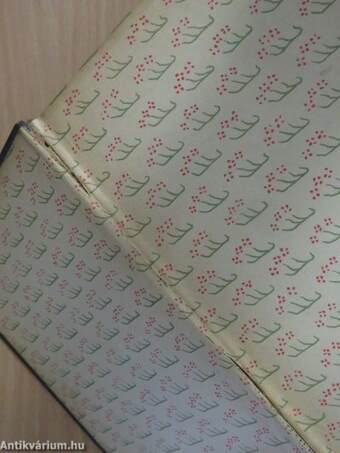 Antikvárium.hu